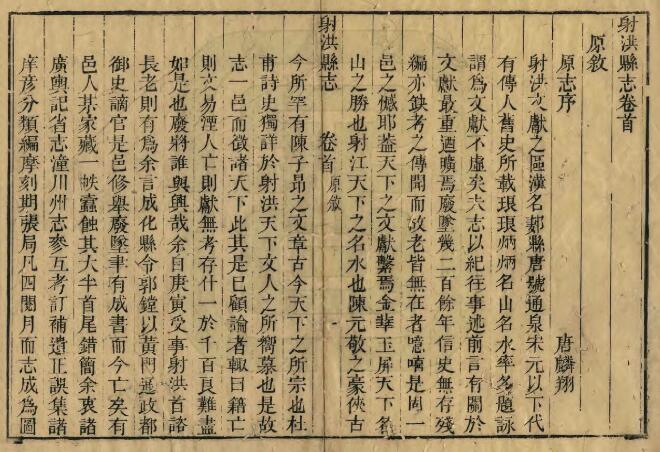 射洪縣志卷首
原敘
原志序
唐麟翔
射洪文獻之區漢名郪縣唐號通泉宋元以下代
有傳人舊史所載琅琅炳炳名山名水率多題詠
謂爲文獻不虛矣夫志以紀往事述前言有關於
文獻最重迺曠焉廢墜幾二百餘年信史無存殘
編亦鈌考之傳聞而故老皆無在者噫嘻是固一
邑之憾耶葢天下之文獻繫焉金華玉屏天下名
山之勝也射江天下之名水也陳元敬之豪俠古
射洪縣志
卷首
原敘
今所罕有陳子昂之文章古今天下之所宗也杜
甫詩史獨詳於射洪天下文人之所嚮慕也是故
志一邑而徵諸天下此其是已顧論者輙曰籍亡
則文易湮人亡則獻無考存什一於千百良難盡
如是也廢將誰與興哉余自庚寅受事射洪首諮
長老則有爲余言成化縣令郭鏜以黄門通政都
御史謫官是邑修舉廢墜聿有成書而今亡矣有
邑人某家藏一帙蠧蝕其大半首尾錯簡余裒諸
廣輿記省志潼川州志參互考訂補遺正誤集諸
庠彦分類編摩刻期張局凡四閱月而志成爲圖